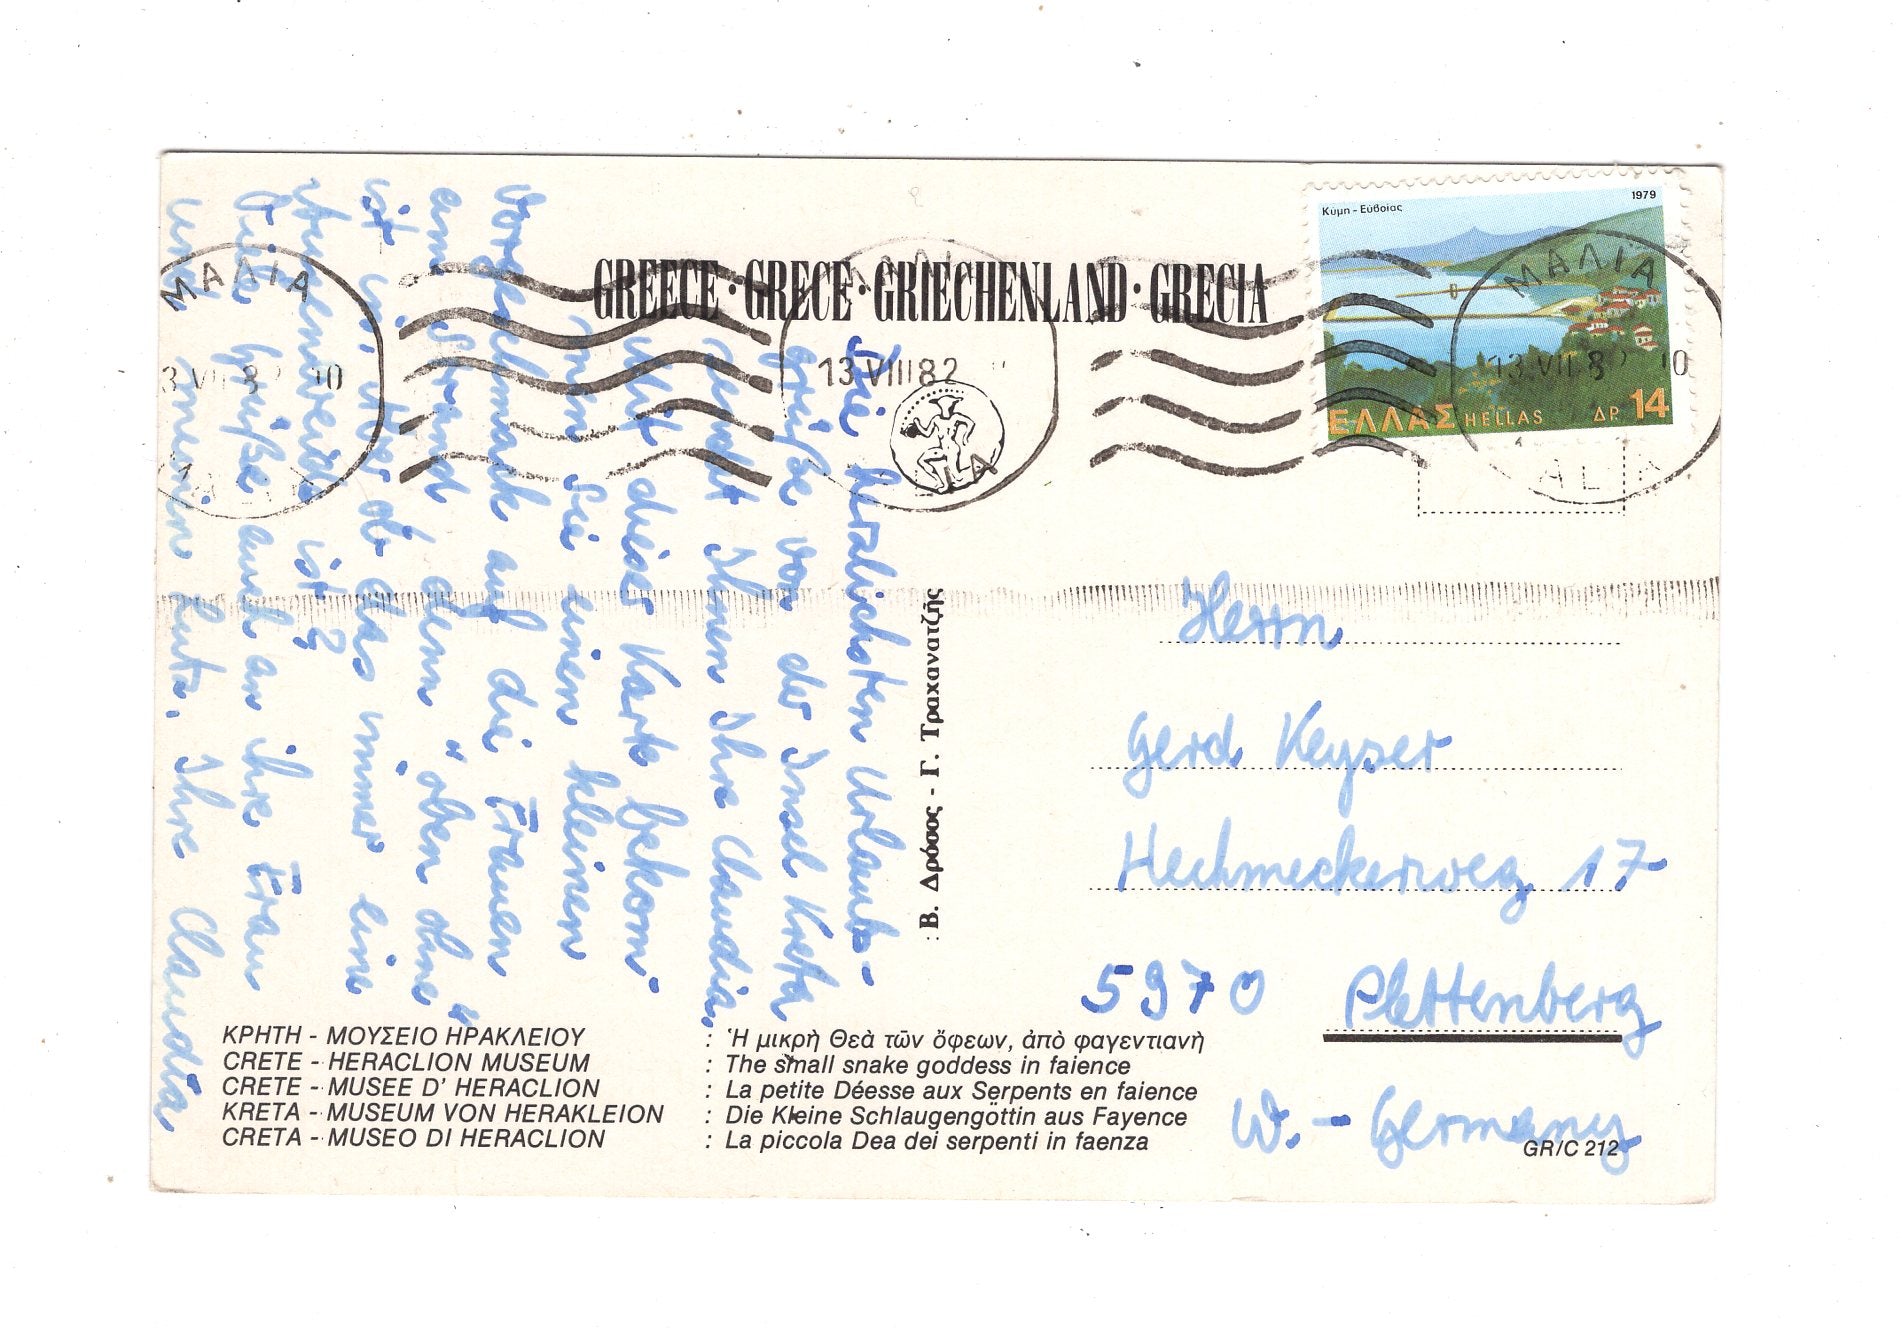 GREECE · GRECE · GRIECHENLAND · GRECIA
1979
Κύμη - Εύβοίας
ΕΛΛΑΣ HELLAS ΔΡ. 14
ΜΑΛΙΑ
13 VIII 82 10
ΜΑΛΙΑ
13 VIII 82
ΜΑΛΙΑ
13 VIII 82 10
ALIA
Die herzlichsten Urlaubs-
grüße von der Insel Kreta
sendet Ihnen Ihre Claudia.
Mit dieser Karte bekom-
men Sie einen kleinen
Vorgeschmack auf die Frauen
am Strand denn "oben ohne"
ist wie der das immer eine
Augenweide ist?
Viele Grüße auch an ihre Frau
und meinen Ihre Claudia
: Β. Δρόσος - Γ. Τραχανατζής
Herrn
Gerd Keyser
Hechmeckerweg 17
5970 Plettenberg
W. - Germany
ΚΡΗΤΗ - ΜΟΥΣΕΙΟ ΗΡΑΚΛΕΙΟΥ : Ἡ μικρὴ Θεὰ τῶν ὄφεων, ἀπὸ φαγεντιανὴ
CRETE - HERACLION MUSEUM : The small snake goddess in faience
CRETE - MUSEE D' HERACLION : La petite Déesse aux Serpents en faience
KRETA - MUSEUM VON HERAKLEION : Die Kleine Schlaugengöttin aus Fayence
CRETA - MUSEO DI HERACLION : La piccola Dea dei serpenti in faenza
GR/C 212